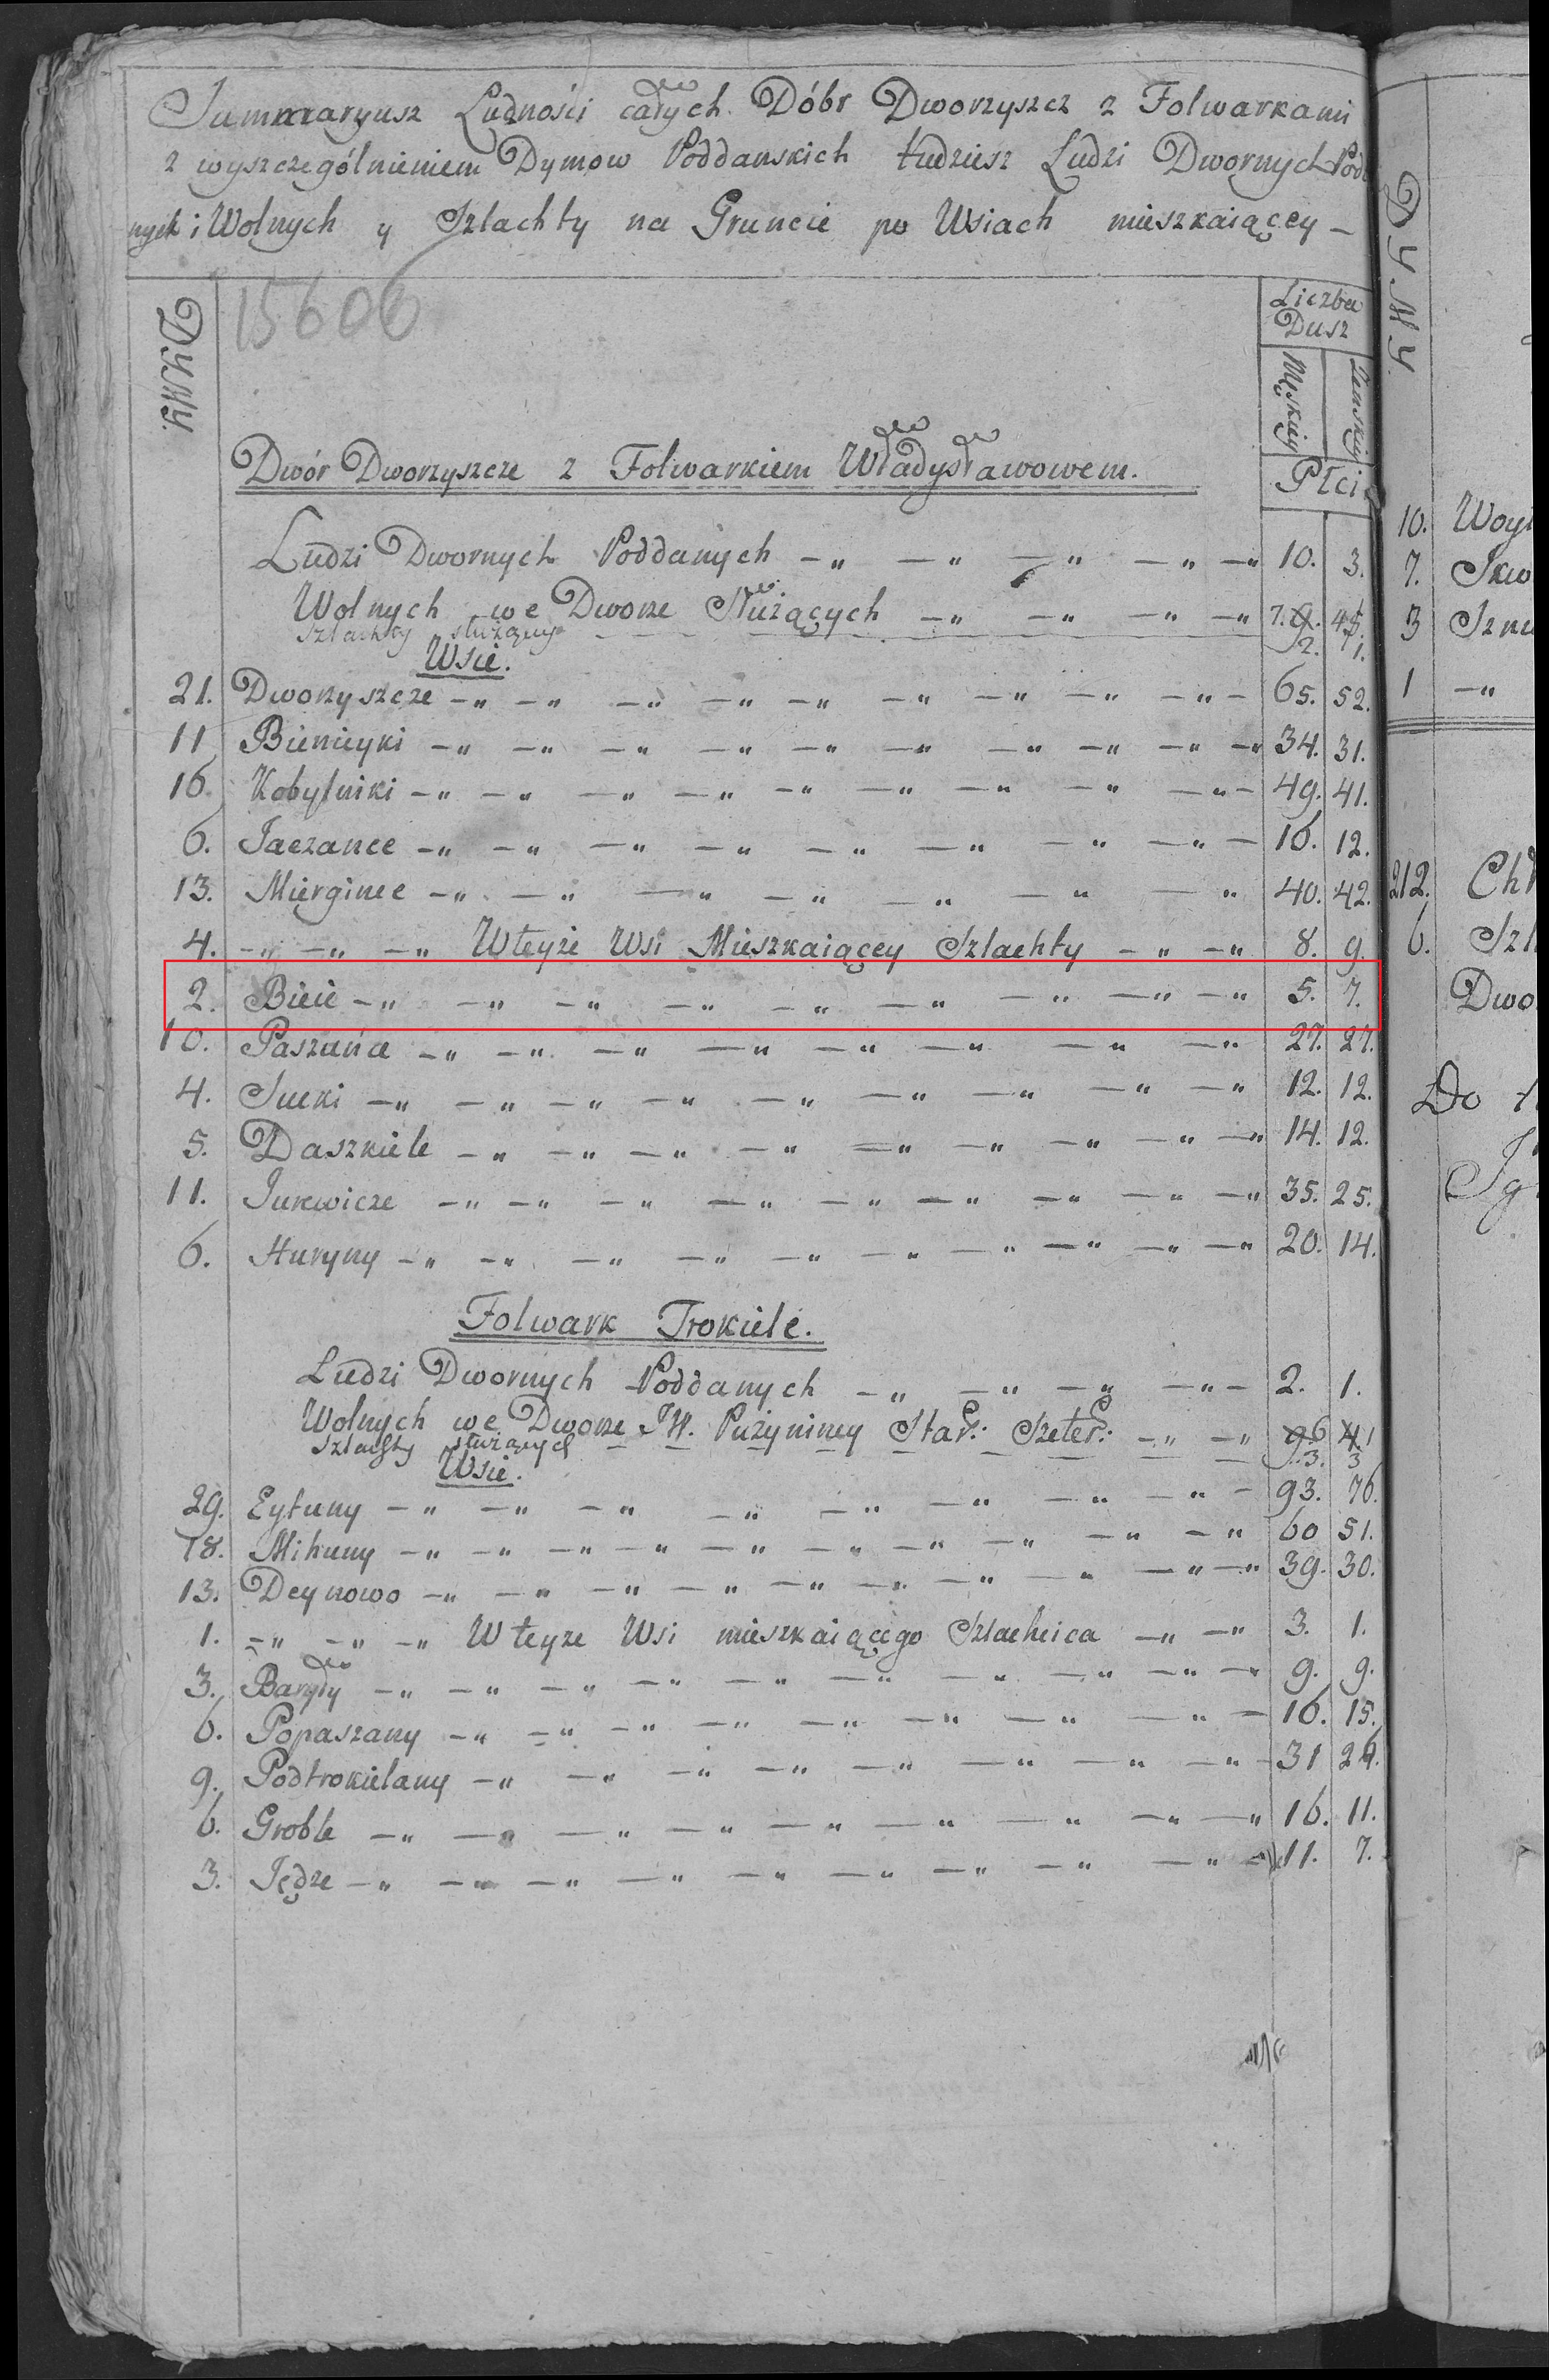 Summaryusz Ludności całych Dóbr Dworzyszcz z Folwarkami
z wyszczególnieniem Dymow Poddanskich tudziesz Ludzi Dwornych Podd
nych i Wolnych y Szlachty na Gruncie po Wsiach mieszkaiącey —
15606
DYMY.
Liczba
Dusz
Męskiey
Żenskiey
Płci
Dwór Dworzyszcze z Folwarkiem Władysławowem.
Ludzi Dwornych Poddanych 10. 3.
Wolnych we Dworze Służących 7. 4
Szlachty służącey 2. 1.
Wsie.
21. Dworzyszcze 65. 52.
11 Bienieyki 34. 31.
16. Kobylniki 49. 41.
6. Jaczance 16. 12.
13. Mierginie 40. 42.
4. Wteyże Wsi Mieszkaiącey Szlachty 8. 9.
2. Bicie 5. 7.
10. Paszuńa 27. 27.
4. Sucki 12. 12.
5. Daszkiele 14. 12.
11. Jurewicze 35. 25.
6. Huryny 20. 14.
Folwark Trokiele.
Ludzi Dwornych Poddanych 2. 1.
Wolnych we Dworze JW. Puzyniney Star: Szeter: 6 1
Szlachty służących 3. 3
Wsie.
29. Eytuny 93. 76.
18. Mihuny 60 51.
13. Deynowo 39. 30.
1. Wteyże Wsi mieszkaiącego Szlachcica 3. 1.
3. Baryły 9. 9.
6. Popaszany 16. 15.
9. Podtrokielany 31 26.
6. Groble 16. 11.
3. Jędze 11. 7.
DYMY
10. Woy
7. Skw
3
1
212.
6. Szl
Dwo
Do